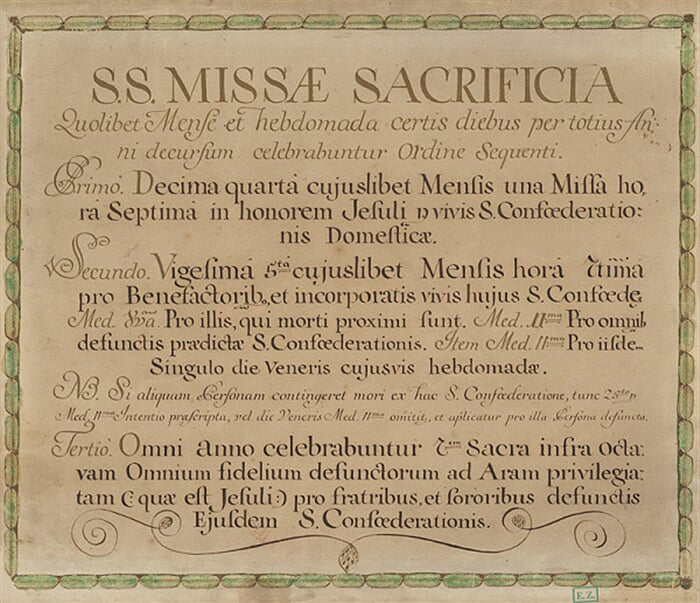 S.S. MISSÆ SACRIFICIA
Quolibet Mense et hebdomada certis diebus per totius An:
ni decursum celebrabuntur Ordine Sequenti.
Primò. Decima quartâ cujuslibet Mensis una Missa ho,
râ Septimâ in honorem Jesuli p vivis S. Confœderatio:
nis Domesticæ.
Secundo. Vigesimâ 5tâ cujuslibet Mensis horâ
pro Benefactorib, et incorporatis vivis hujus S. Confœde,
Med. 8vâ. Pro illis, qui morti proximi sunt. Med. 11ma Pro omnib
defunctis prædictæ S. Confœderationis. Item Med. 11ma Pro iisde
Singulo die Veneris cujusvis hebdomadæ.
NB. Si aliquam Personam contingeret mori ex hac S. Confœderatione, tunc 25ta
Med. 11ma Intentio præscripta, vel die Veneris Med. 11ma omitit, et aplicatur pro illa Persona defuncta.
Tertiò. Omni anno celebrabuntur Sacra infra Octa:
vam Omnium fidelium defunctorum ad Aram privilegia:
tam (: quæ est Jesuli :) pro fratribus, et sororibus defunctis
Ejusdem S. Confœderationis.
E.Z.